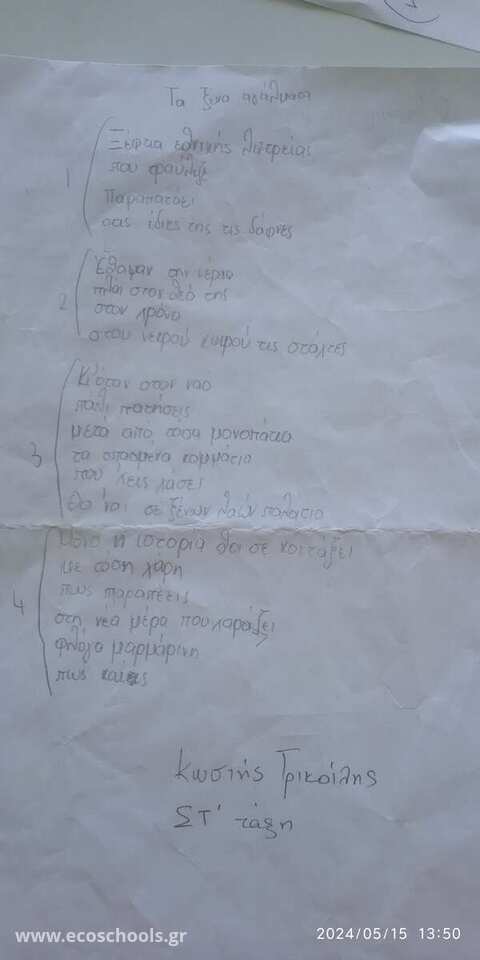 Τα ξένα αγάλματα
1
Ξέφτια εθνικής λατρείας
που φαύλιζε
Παραπατάει
στις ίδιες της τις δάφνες
2
Έθαψαν την νέρια
πλάι στον θεό της
στον χρόνο
στου νεκρού καιρού τις στάχτες
3
Κι όταν στον ναό
πάλι πατήσεις
μετά από τόσα μονοπάτια
τα σπασμένα κομμάτια
που λες χάσες
θα 'ναι σε ξένων λαών παλάτια
4
Μόνο η ιστορία θα σε κοιτάξει
με τόση χάρη
πως παραπέεις
στη νέα μέρα που χαράζει
φλόγα μαρμάρινη
πως καίει
Κωστής Τρικοίλης
ΣΤ' τάξη
www.ecoschools.gr
2024/05/15 13:50